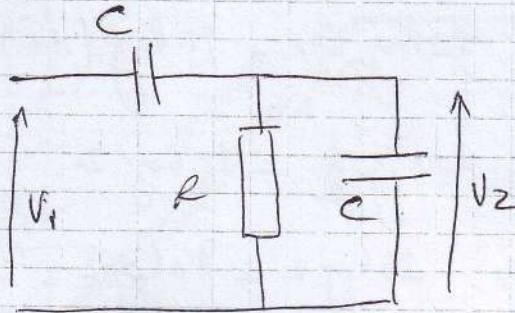 C
V1
R
C
V2